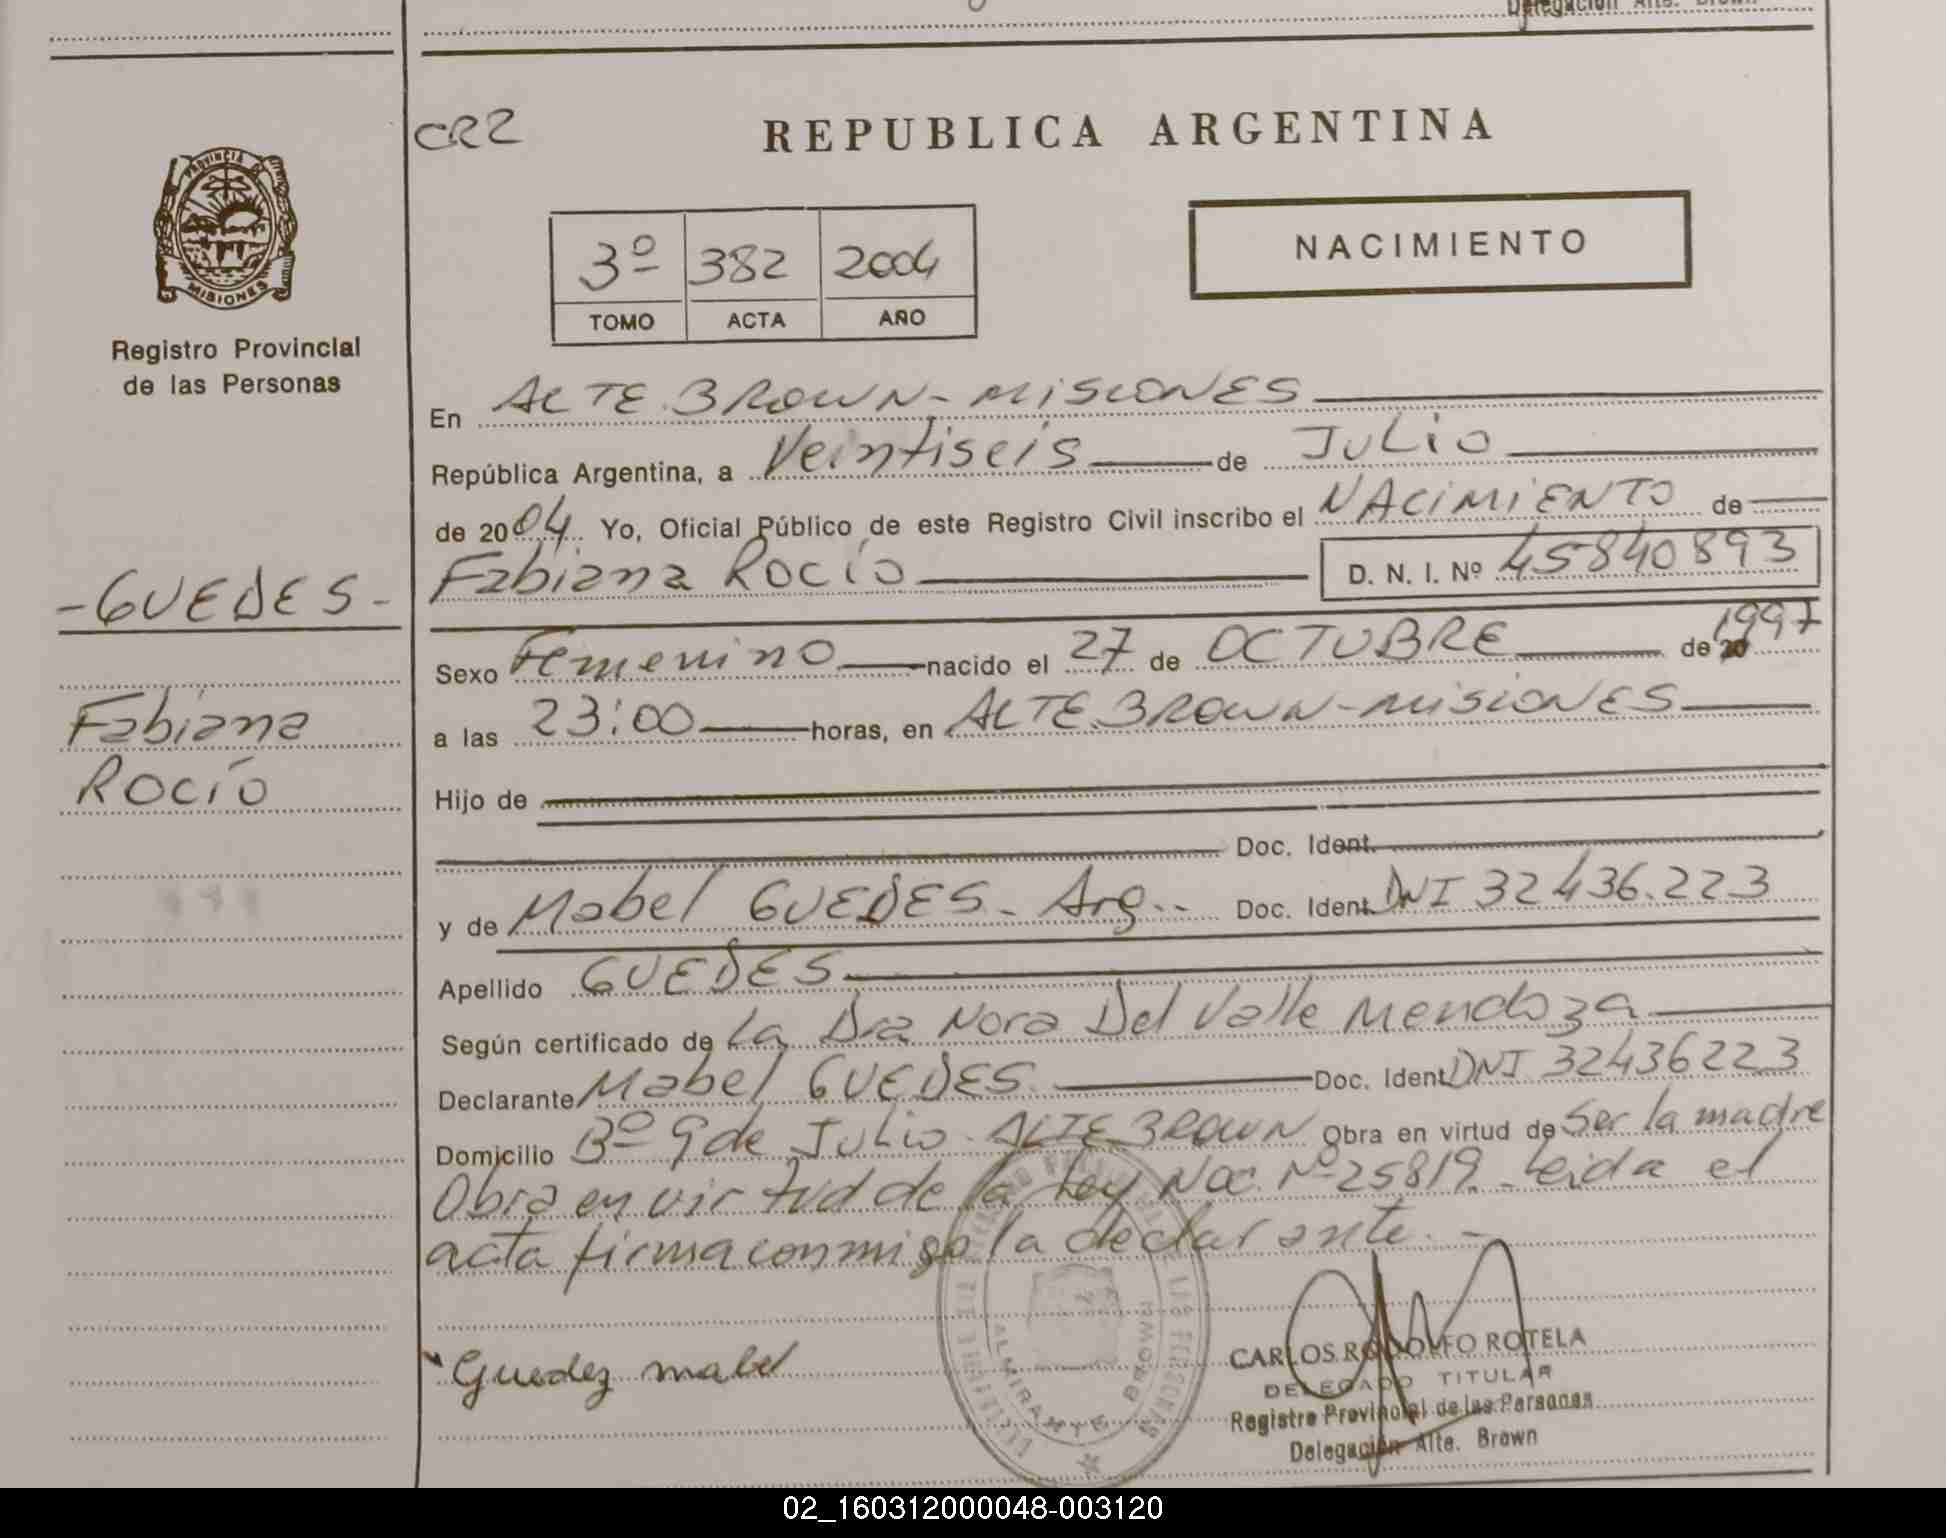 Delegación Alte. Brown
CRZ
REPUBLICA ARGENTINA
PROVINCIA DE MISIONES
Registro Provincial
de las Personas
3º 382 2004
TOMO ACTA AÑO
NACIMIENTO
En ALTE. BROWN - MISIONES
República Argentina, a Veintiseis de JULIO
de 2004. Yo, Oficial Público de este Registro Civil inscribo el NACIMIENTO de
- GUEDES -
Fabiana Rocío D. N. I. Nº 45840893
Sexo Femenino nacido el 27 de OCTUBRE de 20 1997
Fabiana
Rocío
a las 23:00 horas, en ALTE BROWN - MISIONES
Hijo de
Doc. Ident.
y de Mabel GUEDES - Arg.- Doc. Ident. DNI 32436.223
Apellido GUEDES
Según certificado de La Dra Nora Del Valle Mendoza
Declarante Mabel GUEDES Doc. Ident DNI 32436223
Domicilio Bº 9 de Julio - ALTE BROWN Obra en virtud de Ser la madre
Obra en virtud de la Ley Nac. Nº 25819. Leida el
acta firma conmigo la declarante. -
Guedez mabel
ALMIRANTE BROWN
CARLOS RODOLFO ROTELA
DELEGADO TITULAR
Registro Provincial de las Personas
Delegación Alte. Brown
02_160312000048-003120